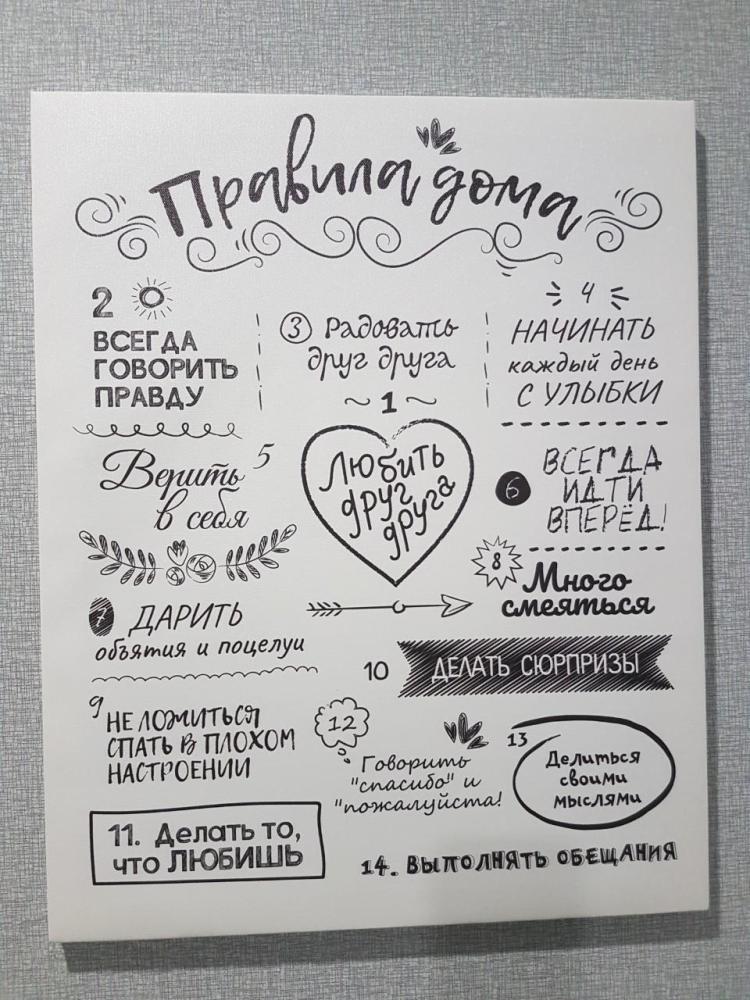 Правила дома
2
ВСЕГДА
ГОВОРИТЬ
ПРАВДУ
3 Радовать
друг друга
4
НАЧИНАТЬ
каждый день
С УЛЫБКИ
~ 1 ~
Любить
друг
друга
Верить 5
в себя
6
ВСЕГДА
ИДТИ
ВПЕРЁД!
7 ДАРИТЬ
объятия и поцелуи
8
Много
смеяться
10 ДЕЛАТЬ СЮРПРИЗЫ
9
НЕ ЛОЖИТЬСЯ
СПАТЬ В ПЛОХОМ
НАСТРОЕНИИ
12
Говорить
"спасибо" и
"пожалуйста!
13
Делиться
своими
мыслями
11. Делать то,
что ЛЮБИШЬ
14. ВЫПОЛНЯТЬ ОБЕЩАНИЯ